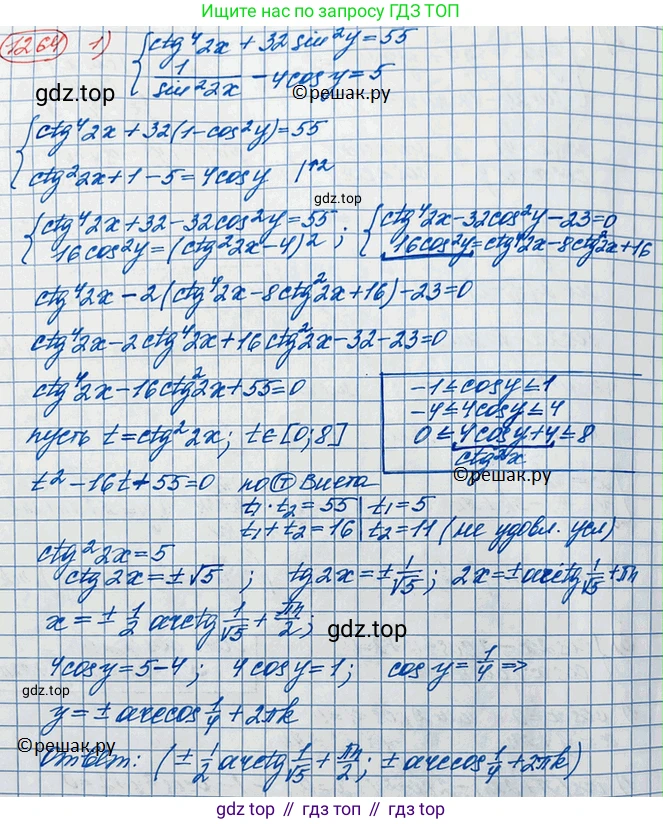 Больше решебников по запросу ГДЗ ТОП
1264 1) { ctg⁴2x + 32 sin²y = 55
1/sin²2x - 4cosy = 5
gdz.top
©решак.ру
{ ctg⁴2x + 32(1-cos²y) = 55
ctg²2x + 1 - 5 = 4cosy |↑2
gdz.top
{ ctg⁴2x + 32 - 32cos²y = 55 ; { ctg⁴2x - 32cos²y - 23 = 0
16cos²y = (ctg²2x - 4)² 16cos²y = ctg⁴2x - 8ctg²2x + 16
ctg⁴2x - 2(ctg⁴2x - 8ctg²2x + 16) - 23 = 0
ctg⁴2x - 2ctg⁴2x + 16ctg²2x - 32 - 23 = 0
ctg⁴2x - 16ctg²2x + 55 = 0
-1 ≤ cosy ≤ 1
-4 ≤ 4cosy ≤ 4
0 ≤ 4cosy + 4 ≤ 8
ctg²x
©решак.ру
пусть t = ctg²2x; t ∈ [0; 8]
t² - 16t + 55 = 0 по Т Виета
t₁ · t₂ = 55 | t₁ = 5
t₁ + t₂ = 16 | t₂ = 11 (не удовл. усл)
ctg²2x = 5
ctg2x = ±√5 ; tg2x = ±1/√5 ; 2x = ±arctg 1/√5 + πn
x = ± 1/2 arctg 1/√5 + πn/2 ;
gdz.top
4cosy = 5-4 ; 4cosy = 1 ; cosy = 1/4 =>
y = ± arccos 1/4 + 2πk
©решак.ру
Ответ: (± 1/2 arctg 1/√5 + πn/2 ; ± arccos 1/4 + 2πk)
gdz.top // гдз.топ // gdz.top // гдз.топ